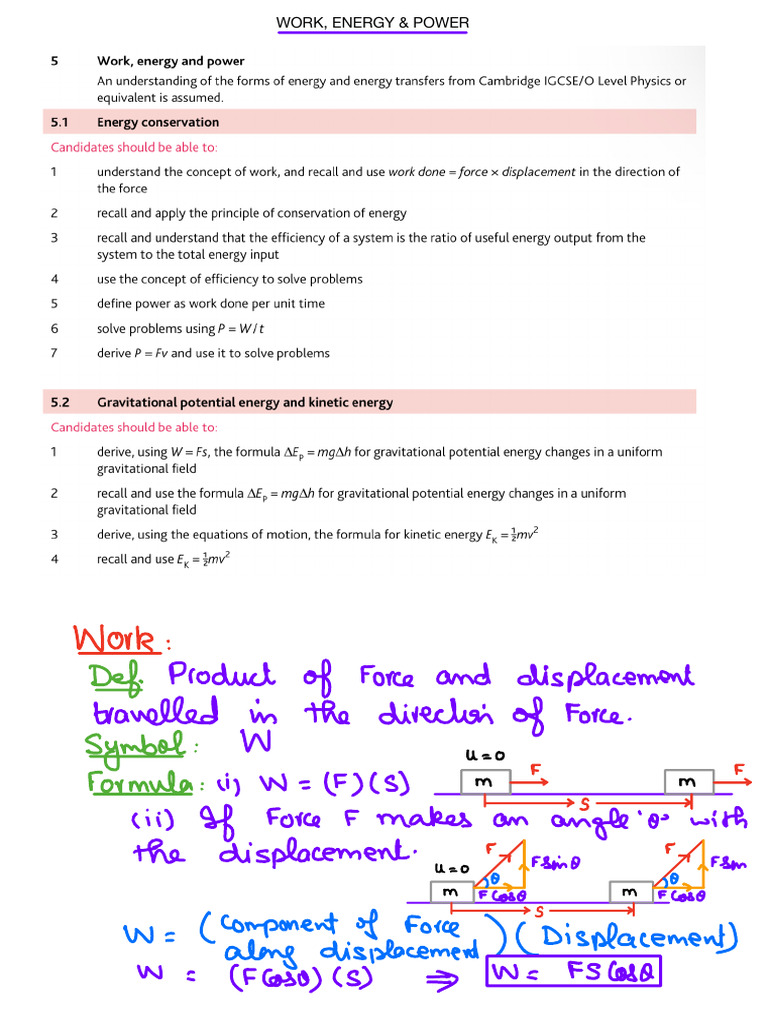 WORK, ENERGY & POWER
5 Work, energy and power
An understanding of the forms of energy and energy transfers from Cambridge IGCSE/O Level Physics or
equivalent is assumed.
5.1 Energy conservation
Candidates should be able to:
1 understand the concept of work, and recall and use work done = force × displacement in the direction of
the force
2 recall and apply the principle of conservation of energy
3 recall and understand that the efficiency of a system is the ratio of useful energy output from the
system to the total energy input
4 use the concept of efficiency to solve problems
5 define power as work done per unit time
6 solve problems using P = W / t
7 derive P = Fv and use it to solve problems
5.2 Gravitational potential energy and kinetic energy
Candidates should be able to:
1 derive, using W = Fs, the formula ΔEₚ = mgΔh for gravitational potential energy changes in a uniform
gravitational field
2 recall and use the formula ΔEₚ = mgΔh for gravitational potential energy changes in a uniform
gravitational field
3 derive, using the equations of motion, the formula for kinetic energy E_K = ½mv²
4 recall and use E_K = ½mv²
Work:
Def. Product of Force and displacement
travelled in the direction of Force.
Symbol: W
u=0
F
F
Formula: (i) W = (F)(S)
m
m
S
(ii) If Force F makes an angle 'θ' with
the displacement.
F
F sin θ
F
F sin
u=0
θ
θ
m
F Cosθ
m
F Cosθ
S
W = (Component of Force along displacement) (Displacement)
W = (F Cosθ) (S) ⇒ W = FS Cosθ